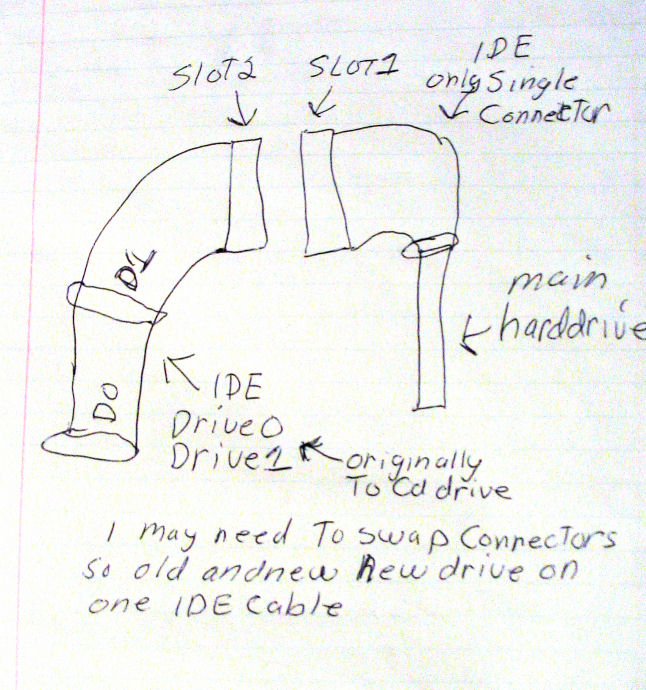 SLOT2
SLOT1
IDE
only Single
Connector
D1
D0
main
harddrive
IDE
Drive0
Drive1
originally
To Cd drive
I may need To swap Connectors
So old andnew New drive on
one IDE Cable